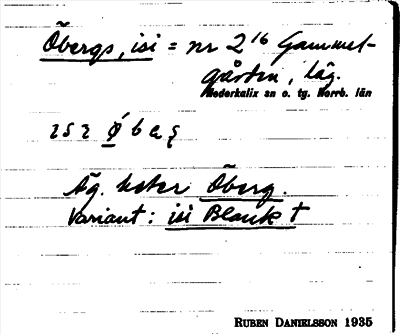 Öbergs, isi = nr 2¹⁶ Gammel-
gården, läg.
Nederkalix sn o. tg. Norrb. län
Äg. heter Öberg.
Variant: isi Blank †
RUBEN DANIELSSON 1935